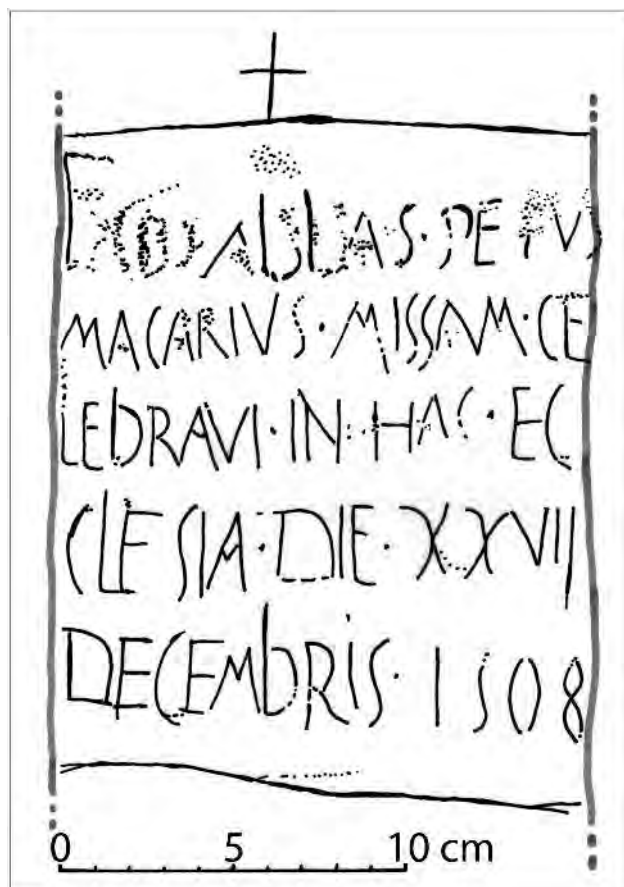 EGO ABBAS ·
MACARIVS · MISSAM · CE
LEBRAVI · IN · HAC · EC
CLESIA · DIE · XXVII
DECEMBRIS · 1508
0 5 10 cm